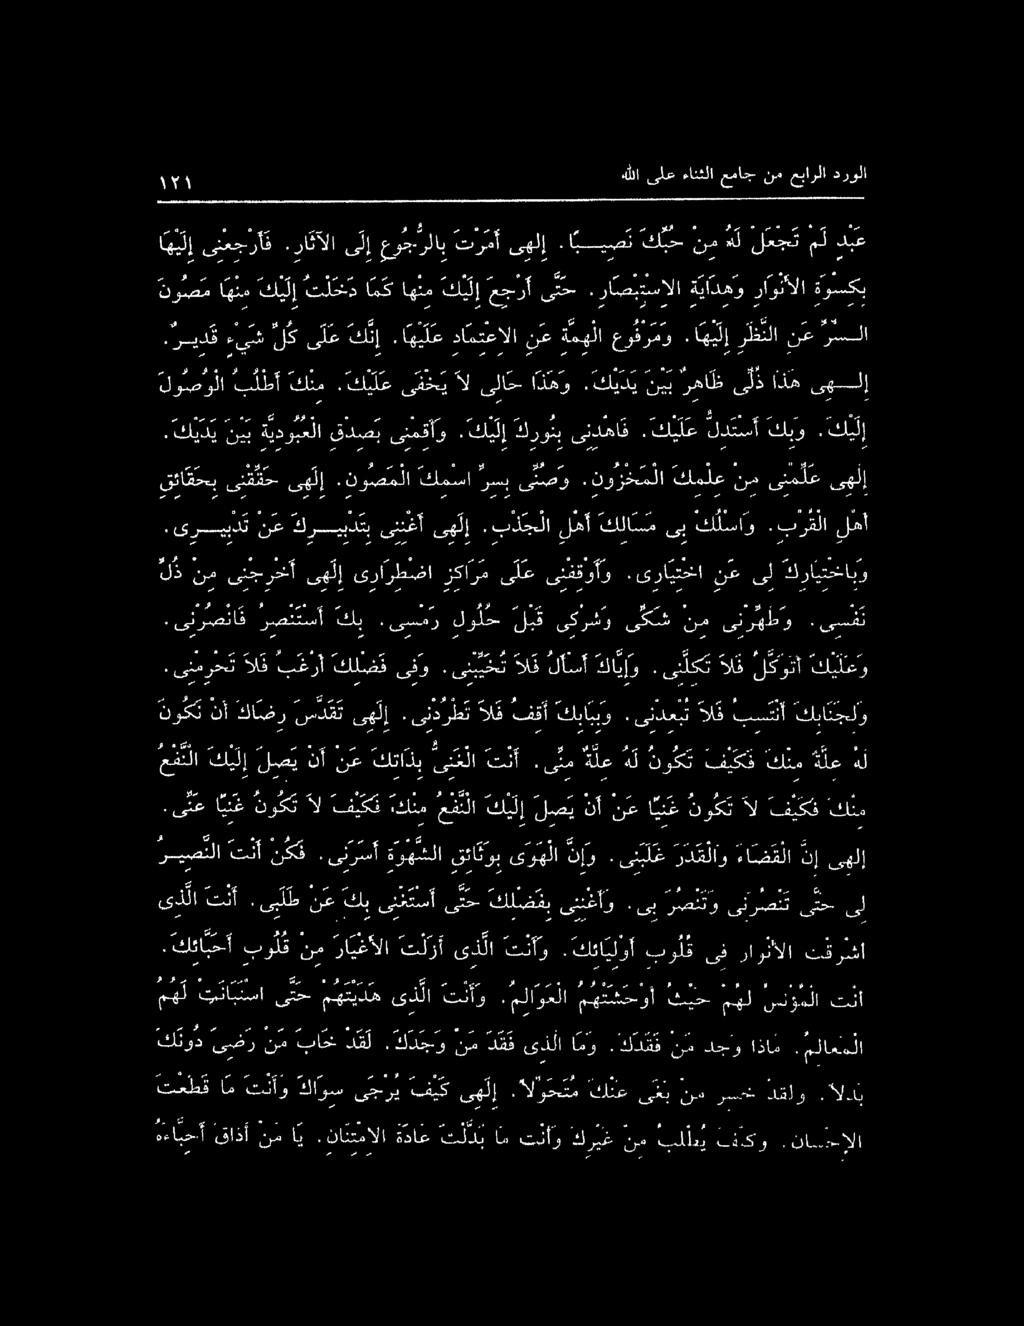 الورد الرابع من جامع الثناء على الله
١٢١
عَبْدٍ لَمْ تَجْعَلْ لَهُ مِنْ حُبِّكَ نَصِيـــبًا. إِلٰهِى أَمَرْتَ بِالرُّجُوعِ إِلَى الآثَارِ. فَأَرْجِعْنِى إِلَيْهَا
بِكِسْوَةِ الأَنْوَارِ وَهِدَايَةِ الاِسْتِبْصَارِ. حَتَّى أَرْجِعَ إِلَيْكَ مِنْهَا كَمَا دَخَلْتُ إِلَيْكَ مِنْهَا مَصُونَ
الـــسِّرِّ عَنِ النَّظَرِ إِلَيْهَا. وَمَرْفُوعَ الْهِمَّةِ عَنِ الاِعْتِمَادِ عَلَيْهَا. إِنَّكَ عَلَى كُلِّ شَيْءٍ قَدِيـــرٌ.
إِلـــهِى هَذَا ذُلِّى ظَاهِرٌ بَيْنَ يَدَيْكَ. وَهَذَا حَالِى لاَ يَخْفَى عَلَيْكَ. مِنْكَ أَطْلُبُ الْوُصُولَ
إِلَيْكَ. وَبِكَ أَسْتَدِلُّ عَلَيْكَ. فَاهْدِنِى بِنُورِكَ إِلَيْكَ. وَأَقِمْنِى بِصِدْقِ الْعُبُودِيَّةِ بَيْنَ يَدَيْكَ.
إِلٰهِى عَلِّمْنِى مِنْ عِلْمِكَ الْمَخْزُونِ. وَصُنِّى بِسِرِّ اسْمِكَ الْمَصُونِ. إِلٰهِى حَقِّقْنِى بِحَقَائِقِ
أَهْلِ الْقُرْبِ. وَاسْلُكْ بِى مَسَالِكَ أَهْلِ الْجَذْبِ. إِلٰهِى أَغْنِنِى بِتَدْبِيـــرِكَ عَنْ تَدْبِيـــرِى.
وَبِاخْتِيَارِكَ لِى عَنِ اخْتِيَارِى. وَأَوْقِفْنِى عَلَى مَرَاكِزِ اضْطِرَارِى إِلٰهِى أَخْرِجْنِى مِنْ ذُلِّ
نَفْسِى. وَطَهِّرْنِى مِنْ شَكِّى وَشِرْكِى قَبْلَ حُلُولِ رَمْسِى. بِكَ أَسْتَنْصِرُ فَانْصُرْنِى.
وَعَلَيْكَ أَتَوَكَّلُ فَلاَ تَكِلْنِى. وَإِيَّاكَ أَسْأَلُ فَلاَ تُخَيِّبْنِى. وَفِى فَضْلِكَ أَرْغَبُ فَلاَ تَحْرِمْنِى.
وَلِجَنَابِكَ أَنْتَسِبُ فَلاَ تُبْعِدْنِى. وَبِبَابِكَ أَقِفُ فَلاَ تَطْرُدْنِى. إِلٰهِى تَقَدَّسَ رِضَاكَ أَنْ تَكُونَ
لَهُ عِلَّةٌ مِنْكَ فَكَيْفَ تَكُونُ لَهُ عِلَّةٌ مِنِّى. أَنْتَ الْغَنِىُّ بِذَاتِكَ عَنْ أَنْ يَصِلَ إِلَيْكَ النَّفْعُ
مِنْكَ فَكَيْفَ لاَ تَكُونُ غَنِيًّا عَنْ أَنْ يَصِلَ إِلَيْكَ النَّفْعُ مِنْكَ فَكَيْفَ لاَ تَكُونُ غَنِيًّا عَنِّى.
إِلٰهِى إِنَّ الْقَضَاءَ وَالْقَدَرَ غَلَبَنِى. وَإِنَّ الْهَوَى بِوَثَائِقِ الشَّهْوَةِ أَسَرَنِى. فَكُنْ أَنْتَ النَّصِيـــرَ
لِى حَتَّى تَنْصُرَنِى وَتَنْصُرَ بِى. وَأَغْنِنِى بِفَضْلِكَ حَتَّى أَسْتَغْنِىَ بِكَ عَنْ طَلَبِى. أَنْتَ الَّذِى
أَشْرَقْتَ الأَنْوَارَ فِى قُلُوبِ أَوْلِيَائِكَ. وَأَنْتَ الَّذِى أَزَلْتَ الأَغْيَارَ مِنْ قُلُوبِ أَحِبَّائِكَ.
أَنْتَ الْمُؤْنِسُ لَهُمْ حَيْثُ أَوْحَشَتْهُمُ الْعَوَالِمُ. وَأَنْتَ الَّذِى هَدَيْتَهُمْ حَتَّى اسْتَبَانَتْ لَهُمُ
الْمَعَالِمُ. مَاذَا وَجَدَ مَنْ فَقَدَكَ. وَمَا الَّذِى فَقَدَ مَنْ وَجَدَكَ. لَقَدْ خَابَ مَنْ رَضِىَ دُونَكَ
بَدَلاً. وَلَقَدْ خَسِرَ مَنْ بَغَى عَنْكَ مُتَحَوَّلاً. إِلٰهِى كَيْفَ يُرْجَى سِوَاكَ وَأَنْتَ مَا قَطَعْتَ
الإِحْسَانَ. وَكَيْفَ يُطْلَبُ مِنْ غَيْرِكَ وَأَنْتَ مَا بَدَّلْتَ عَادَةَ الاِمْتِنَانِ. يَا مَنْ أَذَاقَ أَحِبَّاءَهُ